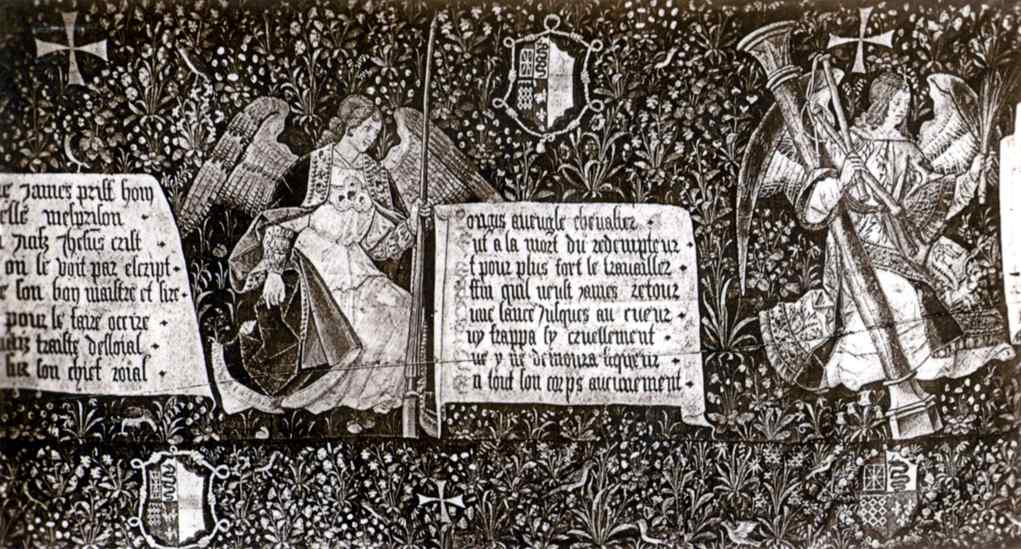 James prist hom
elle mesprison
Natz Jhesus crist
on le voit par escript
son bon maistre et sire
pour le faire occire
traistre desloial
son chief roial
ongis aueugle cheualier
ut a la mort du redempteur
t pour plus fort le trauailler
ffin quil neust james retour
une lance jusques au cueur
uy frappa sy cruellement
ue y ne demoura liqueur
n tout son corps aucunement